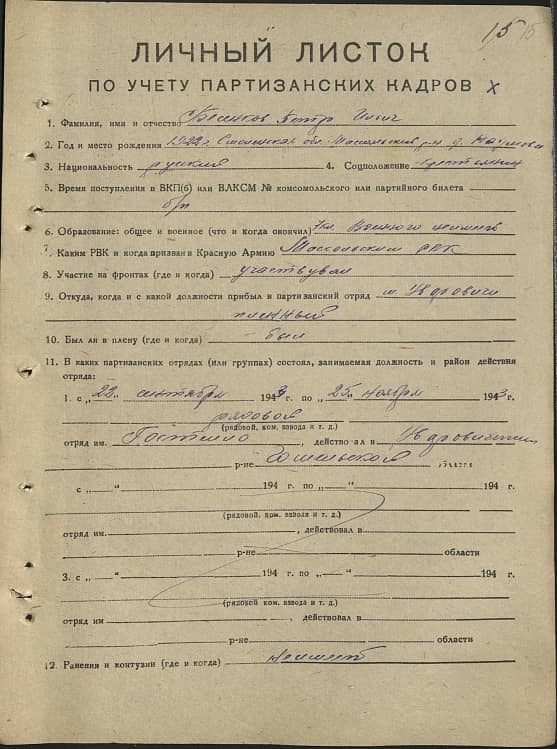 15
ЛИЧНЫЙ ЛИСТОК
ПО УЧЕТУ ПАРТИЗАНСКИХ КАДРОВ
1. Фамилия, имя и отчество Петр Ильич
2. Год и место рождения 1922 г. Смоленская обл.
3. Национальность русский 4. Соцположение
5. Время поступления в ВКП(б) или ВЛКСМ № комсомольского или партийного билета
б/п
6. Образование: общее и военное (что и когда окончил) 7 кл. Военного не имеет
7. Каким РВК и когда призван в Красную Армию РВК
8. Участие на фронтах (где и когда) участвовал
9. Откуда, когда и с какой должности прибыл в партизанский отряд м.
пленный
10. Был ли в плену (где и когда) был
11. В каких партизанских отрядах (или группах) состоял, занимаемая должность и район действия
отряда:
1. с „22" сентября 1943 г. по „25" ноября 1943 г.
рядовой
(рядовой, ком. взвода и т. д.)
отряд им. Гастелло, действовал в
р-не Гомельской области
с „ " 194 г. по „ " 194 г.
(рядовой, ком. взвода и т. д.)
отряд им. , действовал в
р-не области
3. с „ " 194 г. по „ " 194 г.
(рядовой, ком. взвода и т. д.)
отряд им. , действовал в
р-не области
12. Ранения и контузии (где и когда) не имеет